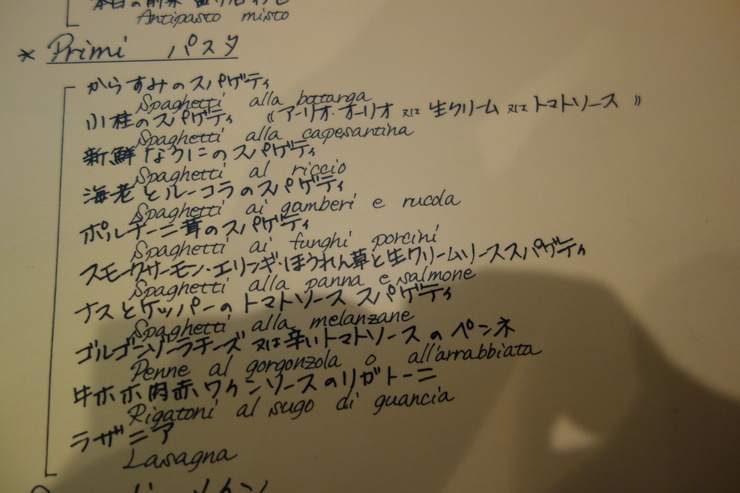 Antipasto misto
* Primi パスタ
からすみのスパゲティ
Spaghetti alla bottarga
小柱のスパゲティ 《アーリオ・オーリオ 又は 生クリーム 又は トマトソース》
Spaghetti alla capesantina
新鮮なうにのスパゲティ
Spaghetti al riccio
海老とルーコラのスパゲティ
Spaghetti ai gamberi e rucola
ポルチーニ茸のスパゲティ
Spaghetti ai funghi porcini
スモークサーモン・エリンギ・ほうれん草と生クリームソーススパゲティ
Spaghetti alla panna e salmone
ナスとケッパーのトマトソース スパゲティ
Spaghetti alla melanzane
ゴルゴンゾーラチーズ 又は辛いトマトソースのペンネ
Penne al gorgonzola o all'arrabbiata
牛ホホ肉赤ワインソースのリガトーニ
Rigatoni al sugo di guancia
ラザニア
Lasagna